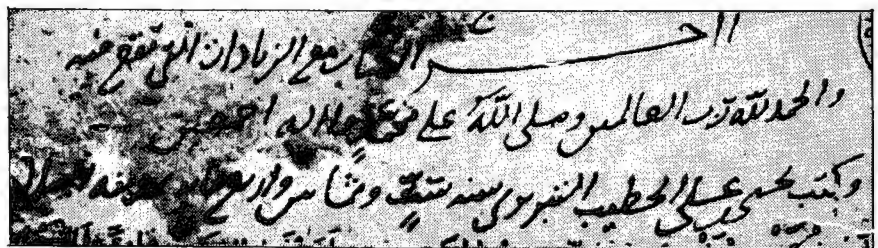 اخر الكتاب مع الزيادات التي تقع فيه
والحمد لله رب العالمين وصلى الله على محمد واله اجمعين
وكتب يحيى بن علي الخطيب التبريزى سنه وثمانين واربع